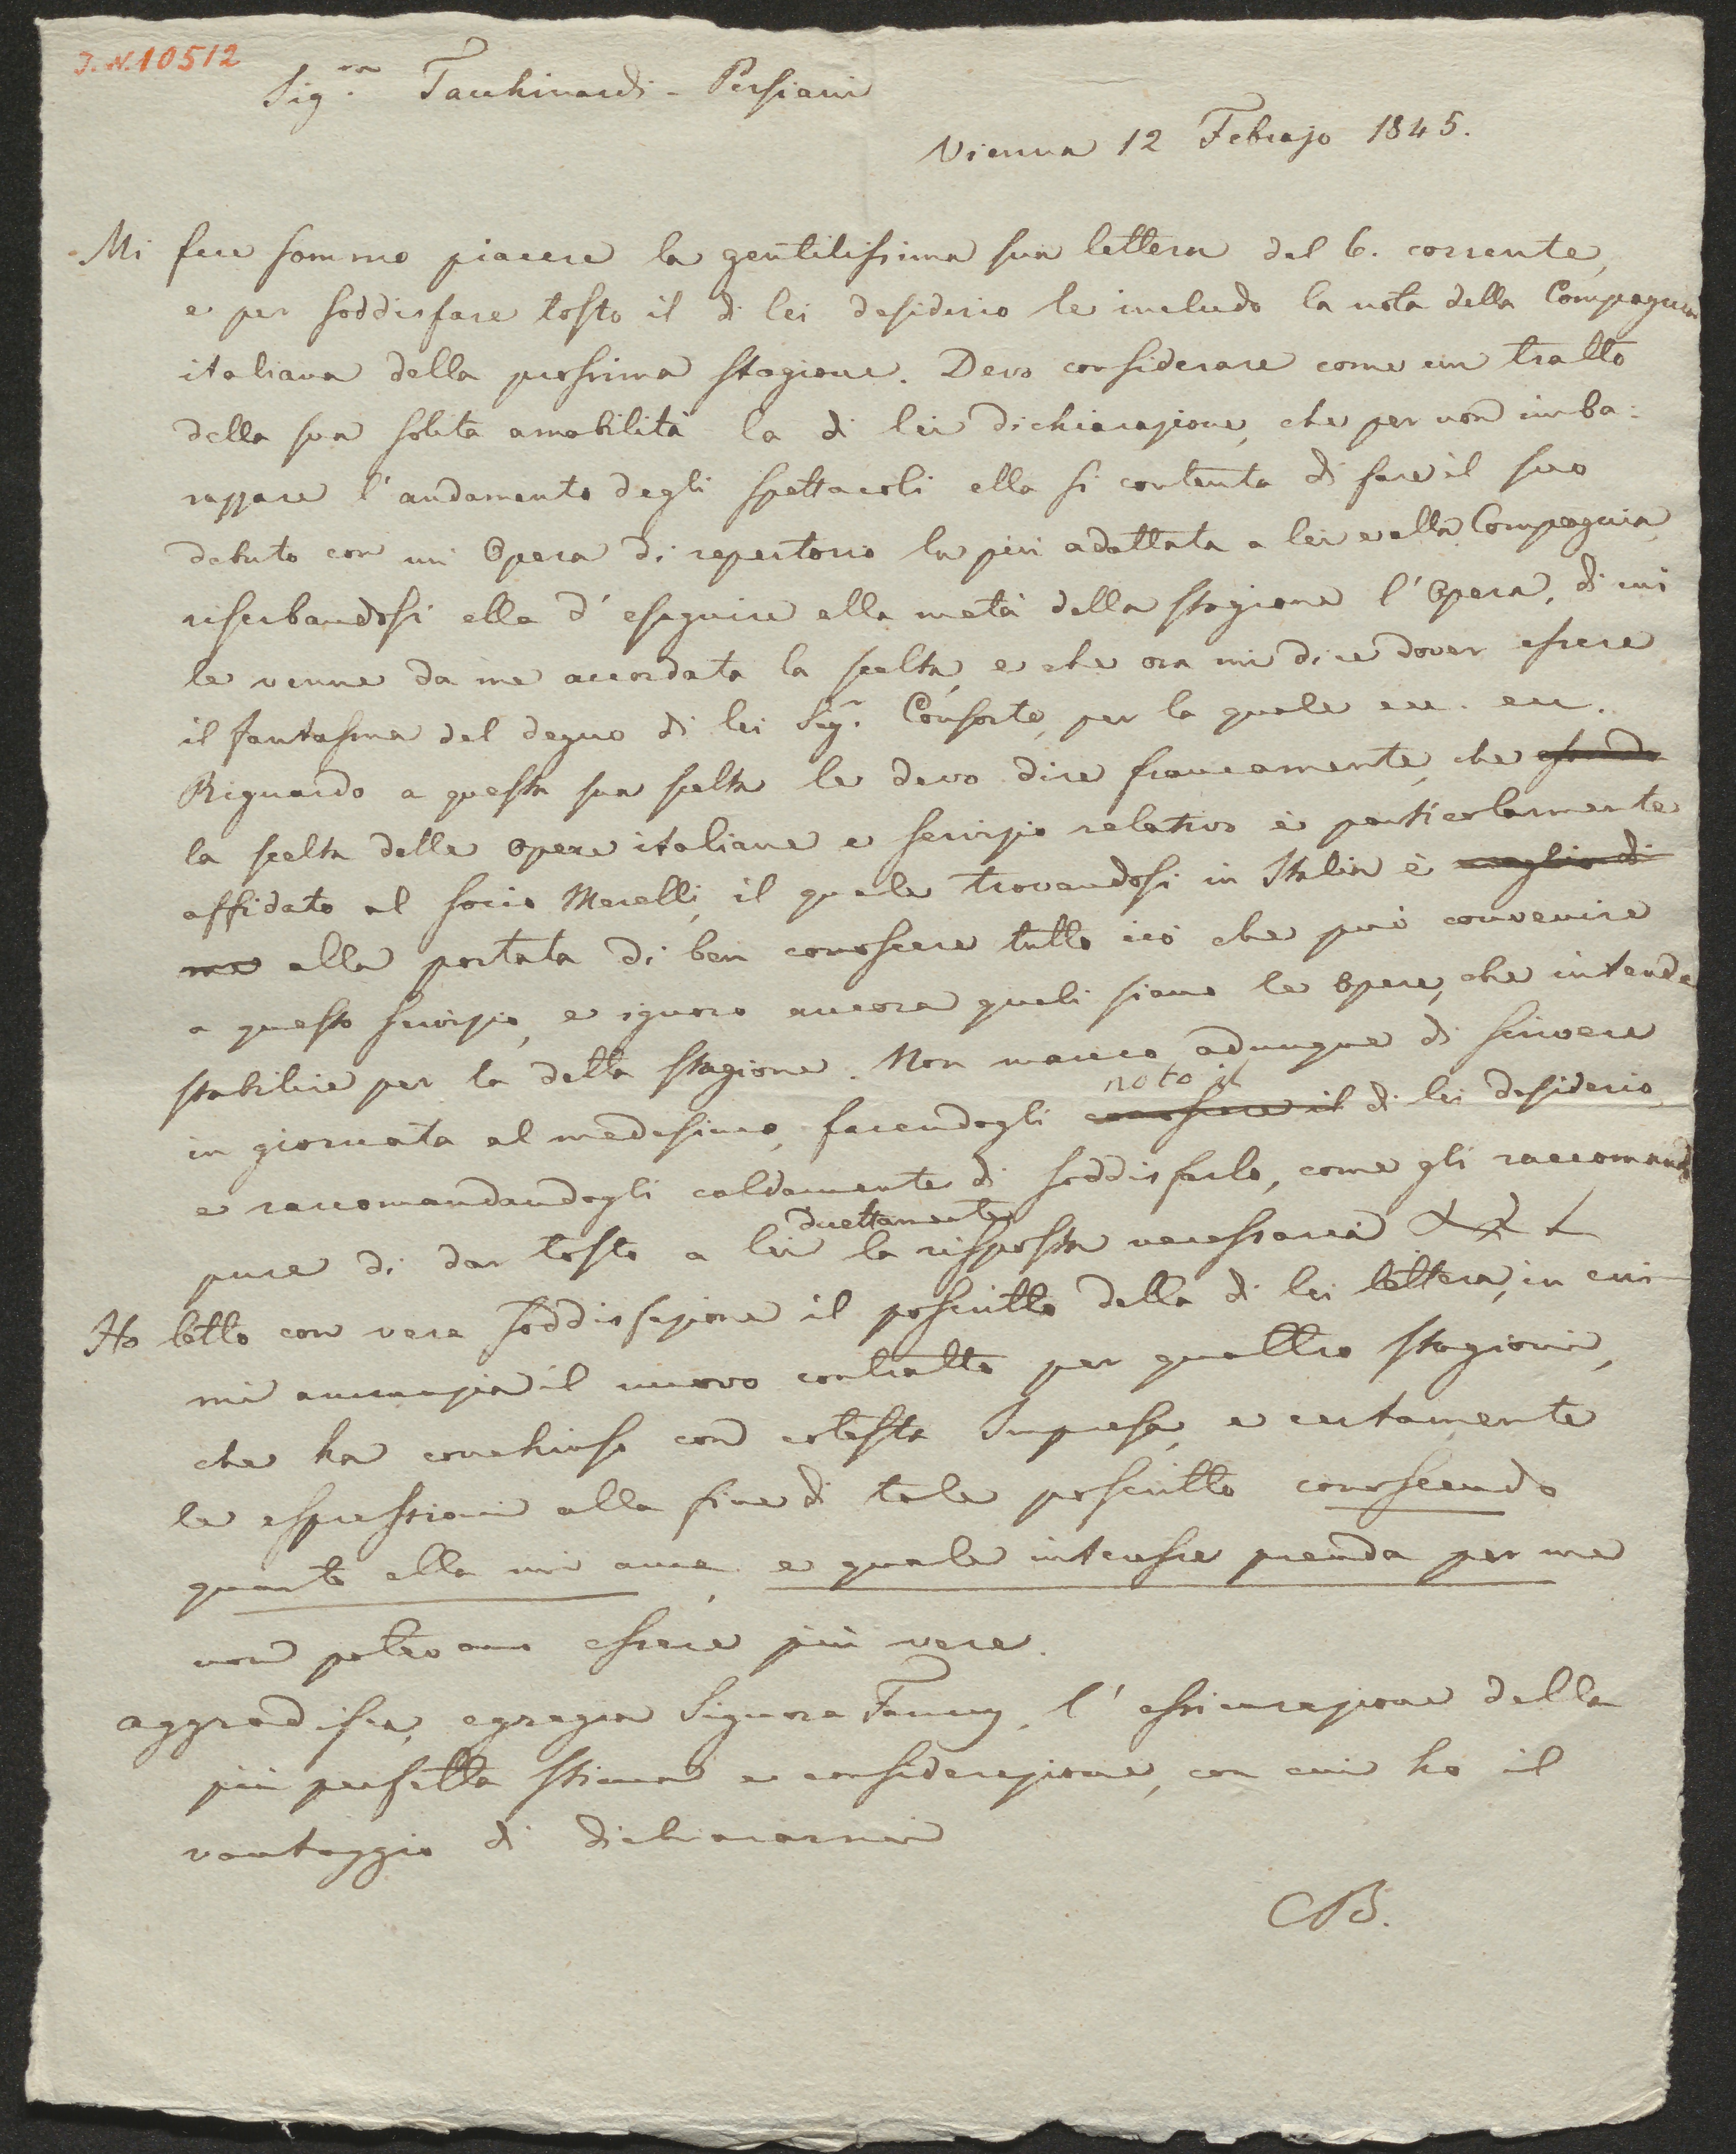 J.N.10512
Sig.ra Tacchinardi-Persiani
Vienna 12 Febrajo 1845.
Mi fece sommo piacere la gentilissima sua lettera del 6. corrente,
e per soddisfare tosto il di lei desiderio le includo la nota della Compagnia
italiana della prossima stagione. Devo considerare come un tratto
della sua solita amabilità la di lei dichiarazione, che per non imba-
razzare l'andamento degli spettacoli ella si contenta di fare il suo
debuto con un Opera di repertorio la più adattata a lei e alla Compagnia,
riserbandosi ella d'eseguire alla metà della stagione l'Opera, di cui
le venne da me accordata la scelta, e che ora mi dice dover essere
il fantasma del degno di lei Sig.r Consorte, per la quale ecc. ecc.
Riguardo a questa sua scelta le devo dire francamente, che essendo
la scelta delle opere italiane e servizio relativo è particolarmente
affidato al socio Merelli, il quale trovandosi in Italia è meglio di
me alla portata di ben conoscere tutto ciò che può convenire
a questo servizio, e ignoro ancora quali siano le opere, che intende
stabilire per la detta stagione. Non manco adunque di scrivere
noto il
in giornata al medesimo, facendogli conoscere il di lei desiderio,
e raccomandandogli caldamente di soddisfarlo, come gli raccomando
direttamente
pure di dar tosto a lei la risposta necessaria
Ho letto con vera soddisfazione il poscritto della di lei lettera, in cui
mi annunzia il nuovo contratto per quattro stagioni,
che ha conchiuso con cotesta Impresa, e certamente
le espressioni alla fine di tale poscritto conoscendo
quanto ella mi ama, e quale interesse prenda per me
non potevano essere più vere.
aggradisca, egregia Signora Fanny, l'assicurazione della
più perfetta stima e considerazione, con cui ho il
vantaggio di dichiararmi
CB.